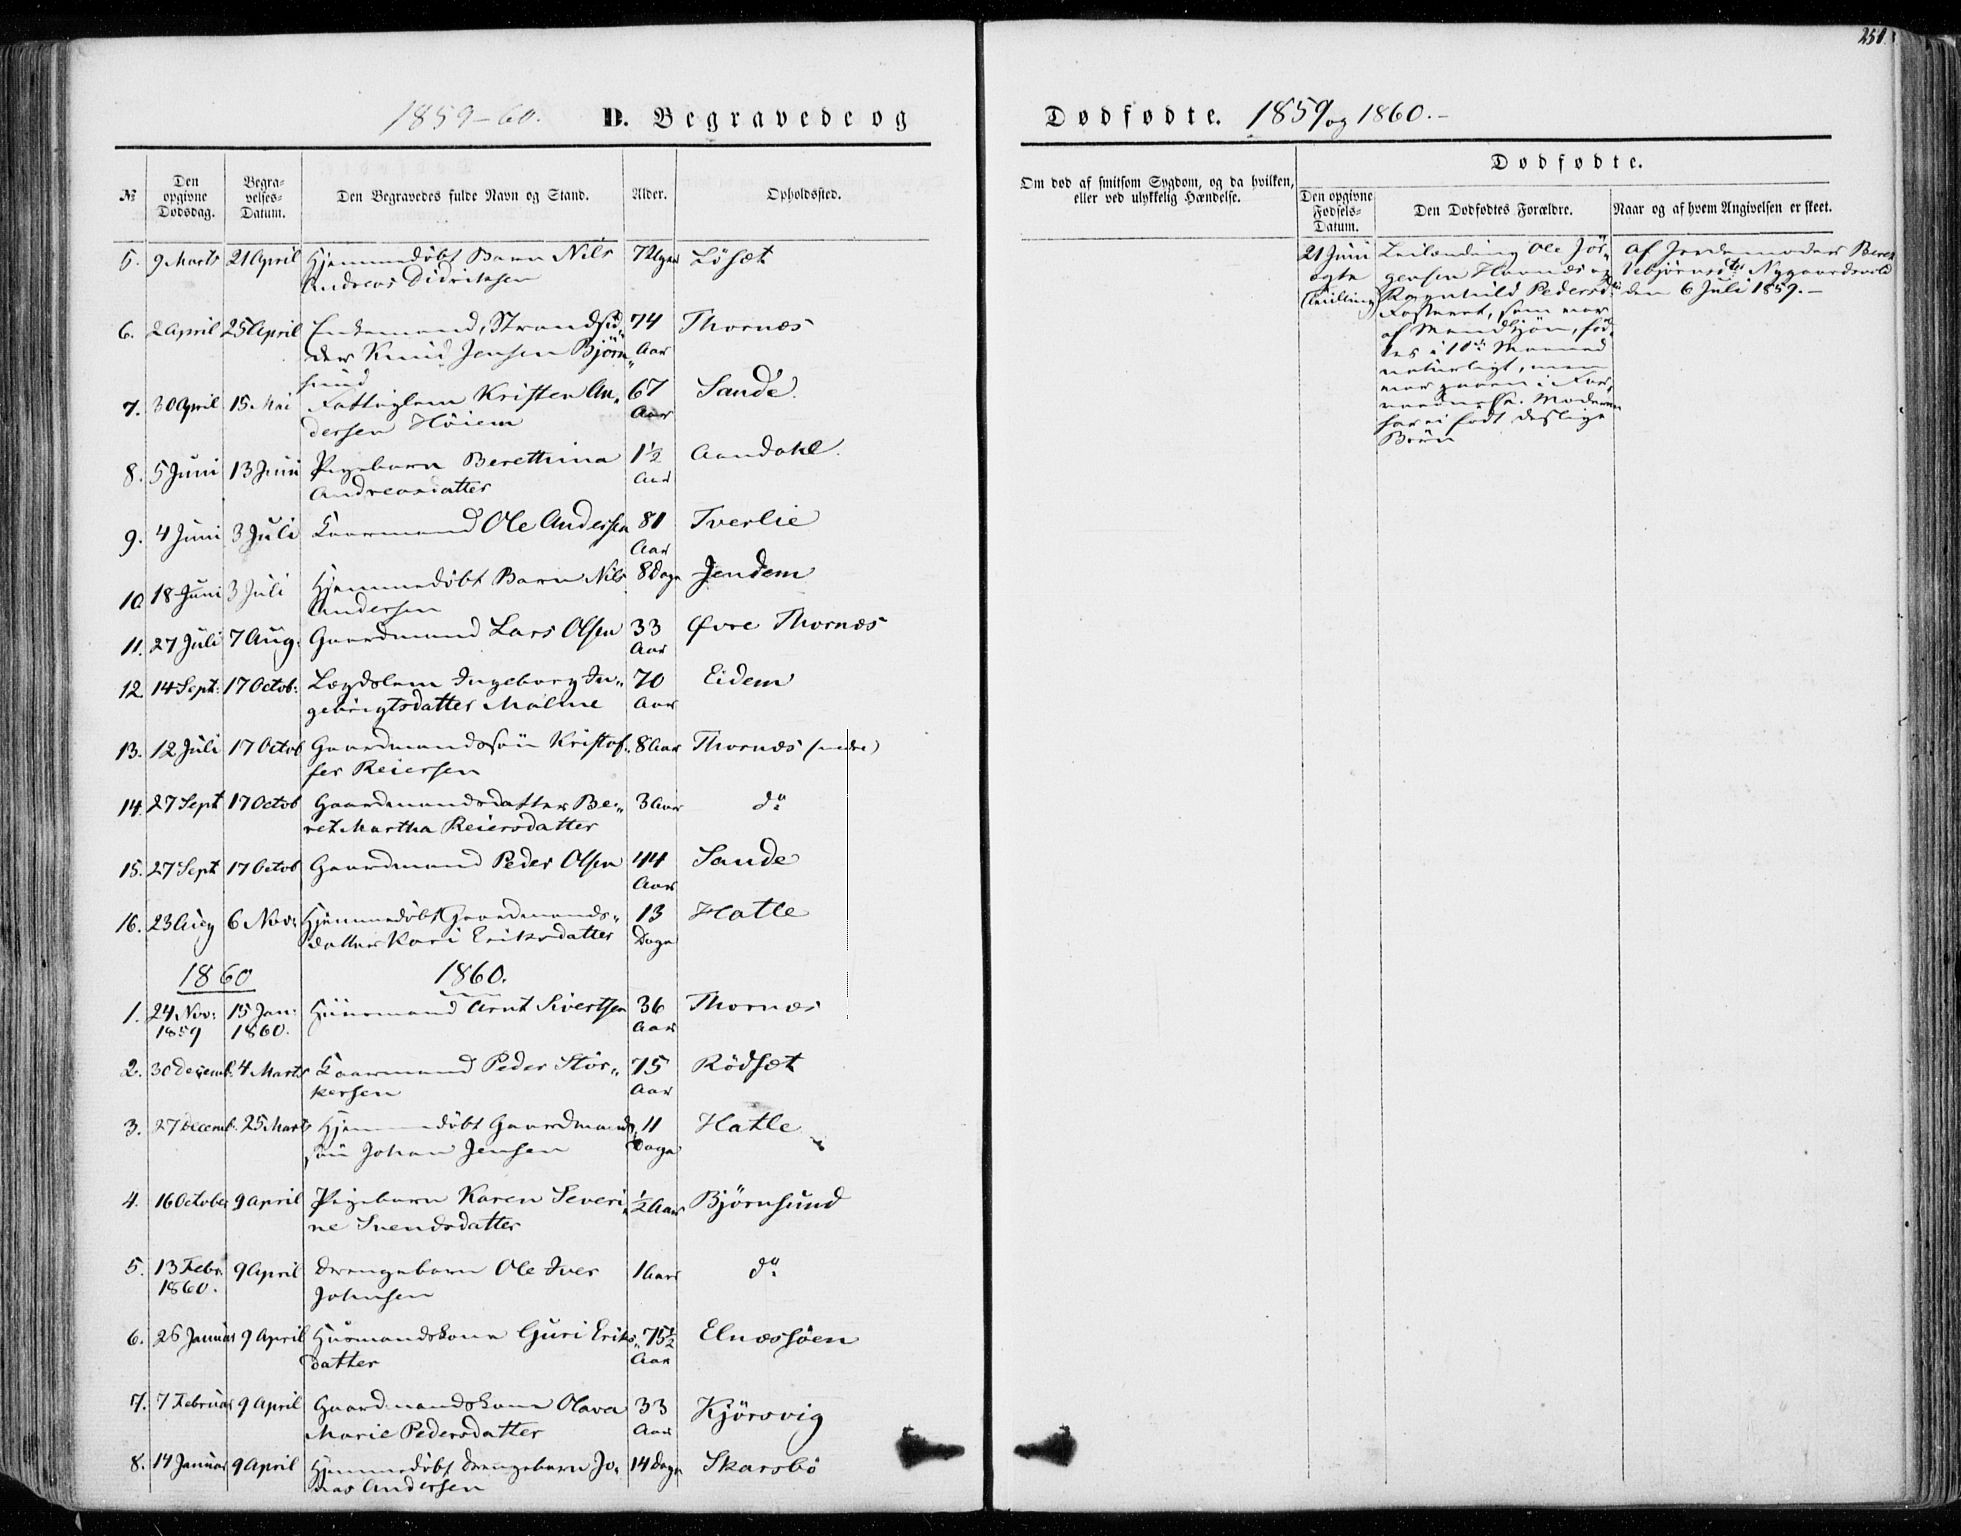 1859-60. D. Begravede og
№ Den opgivne Dødsdag. Begravelses-Datum. Den Begravedes fulde Navn og Stand. Alder. Opholdssted.
5. 9 Marts 21 April Hjemmedøbt Barn Nils 7 Uger Løsæt
Andreas Didriksen
6. 2 April 25 April Enkemand, Strandsid„ 74 Thornæs
der Knud Jensen Bjørn„ Aar
sund
7. 30 April 15 Mai Fattiglem Kristen An„ 67 Sande
dersen Höiem Aar
8. 5 Juni 13 Juni Pigebarn Berethina 1½ Aandahl.
Andreasdatter Aar
9. 4 Juni 3 Juli Kaarmand Ole Andersen 81 Tverlie
Aar
10. 18 Juni 3 Juli Hjemmedøbt Barn Nils 8 Dage Jendem
Andersen
11. 27 Juli 7 Aug. Gaardmand Lars Olsen 33 Øvre Thornæs
Aar
12. 14 Sept: 17 Octob: Lægdslem Ingeborg In„ 70 Eidem
gebrigtsdatter Malme Aar
13. 12 Juli 17 Octob Gaardmandssøn Kristof„ 8 Aar Thornæs (nedre)
fer Reiersen
14. 27 Sept 17 Octob Gaardmandsdatter Be„ 3 Aar do
ret Martha Reiersdatter
15. 27 Sept 17 Octob Gaardmand Peder Olsen 44 Sande
Aar
16. 23 Aug 6 Nov: Hjemmedøbt Gaardmands„ 13 Hatle
datter Kari Eriksdatter Dage
1860 1860.
1. 24 Nov: 15 Jan: Huusmand Arnt Sivertsen 36 Thornæs
1859 1860. Aar
2. 30 Decemb. 4 Marts Kaarmand Peder Stör„ 75 Rödsæt
kersen Aar
3. 27 Decemb. 25 Marts Hjemmedøbt Gaardmands„ 11 Hatle
søn Johan Jensen Dage
4. 16 October 9 April Pigebarn Karen Severi„ ½ Aar Bjørnsund
ne Svendsdatter
5. 13 Febr. 9 April Drengebarn Ole Iver 1 Aar do
1860. Johnsen
6. 26 Januar 9 April Husmandskone Guri Eriks„ 75½ Elnæssöen
datter Aar
7. 7 Februar 9 April Gaardmandskone Olava 33 Kjörsvig
Marie Pedersdatter Aar
8. 14 Januar 9 April Hjemmedøbt Drengebarn Jo„ 14 Dage Skarsbö
nas Andersen
251.
Dødfødte. 1859 og 1860.-
Om død af smitsom Sygdom, og da hvilken, eller ved ulykkelig Hændelse.
Dødfødte.
Den opgivne Fødsels-Datum. Den Dødfødtes Forældre. Naar og af hvem Angivelsen er skeet.
21 Juni Leilænding Ole Jör„ Af Jordemoder Beret
ægte gensen Havnæs og Nygaardsvold
(Tvilling) Ragnhild Pedersdtr den 6 Juli 1859.-
Fosteret, som var
af Mandkjön, föd„
tes i 10de Maaned
naturligt, men
var gaaen i For„
raadnelse. Moderen
har ei født deslige
Børn